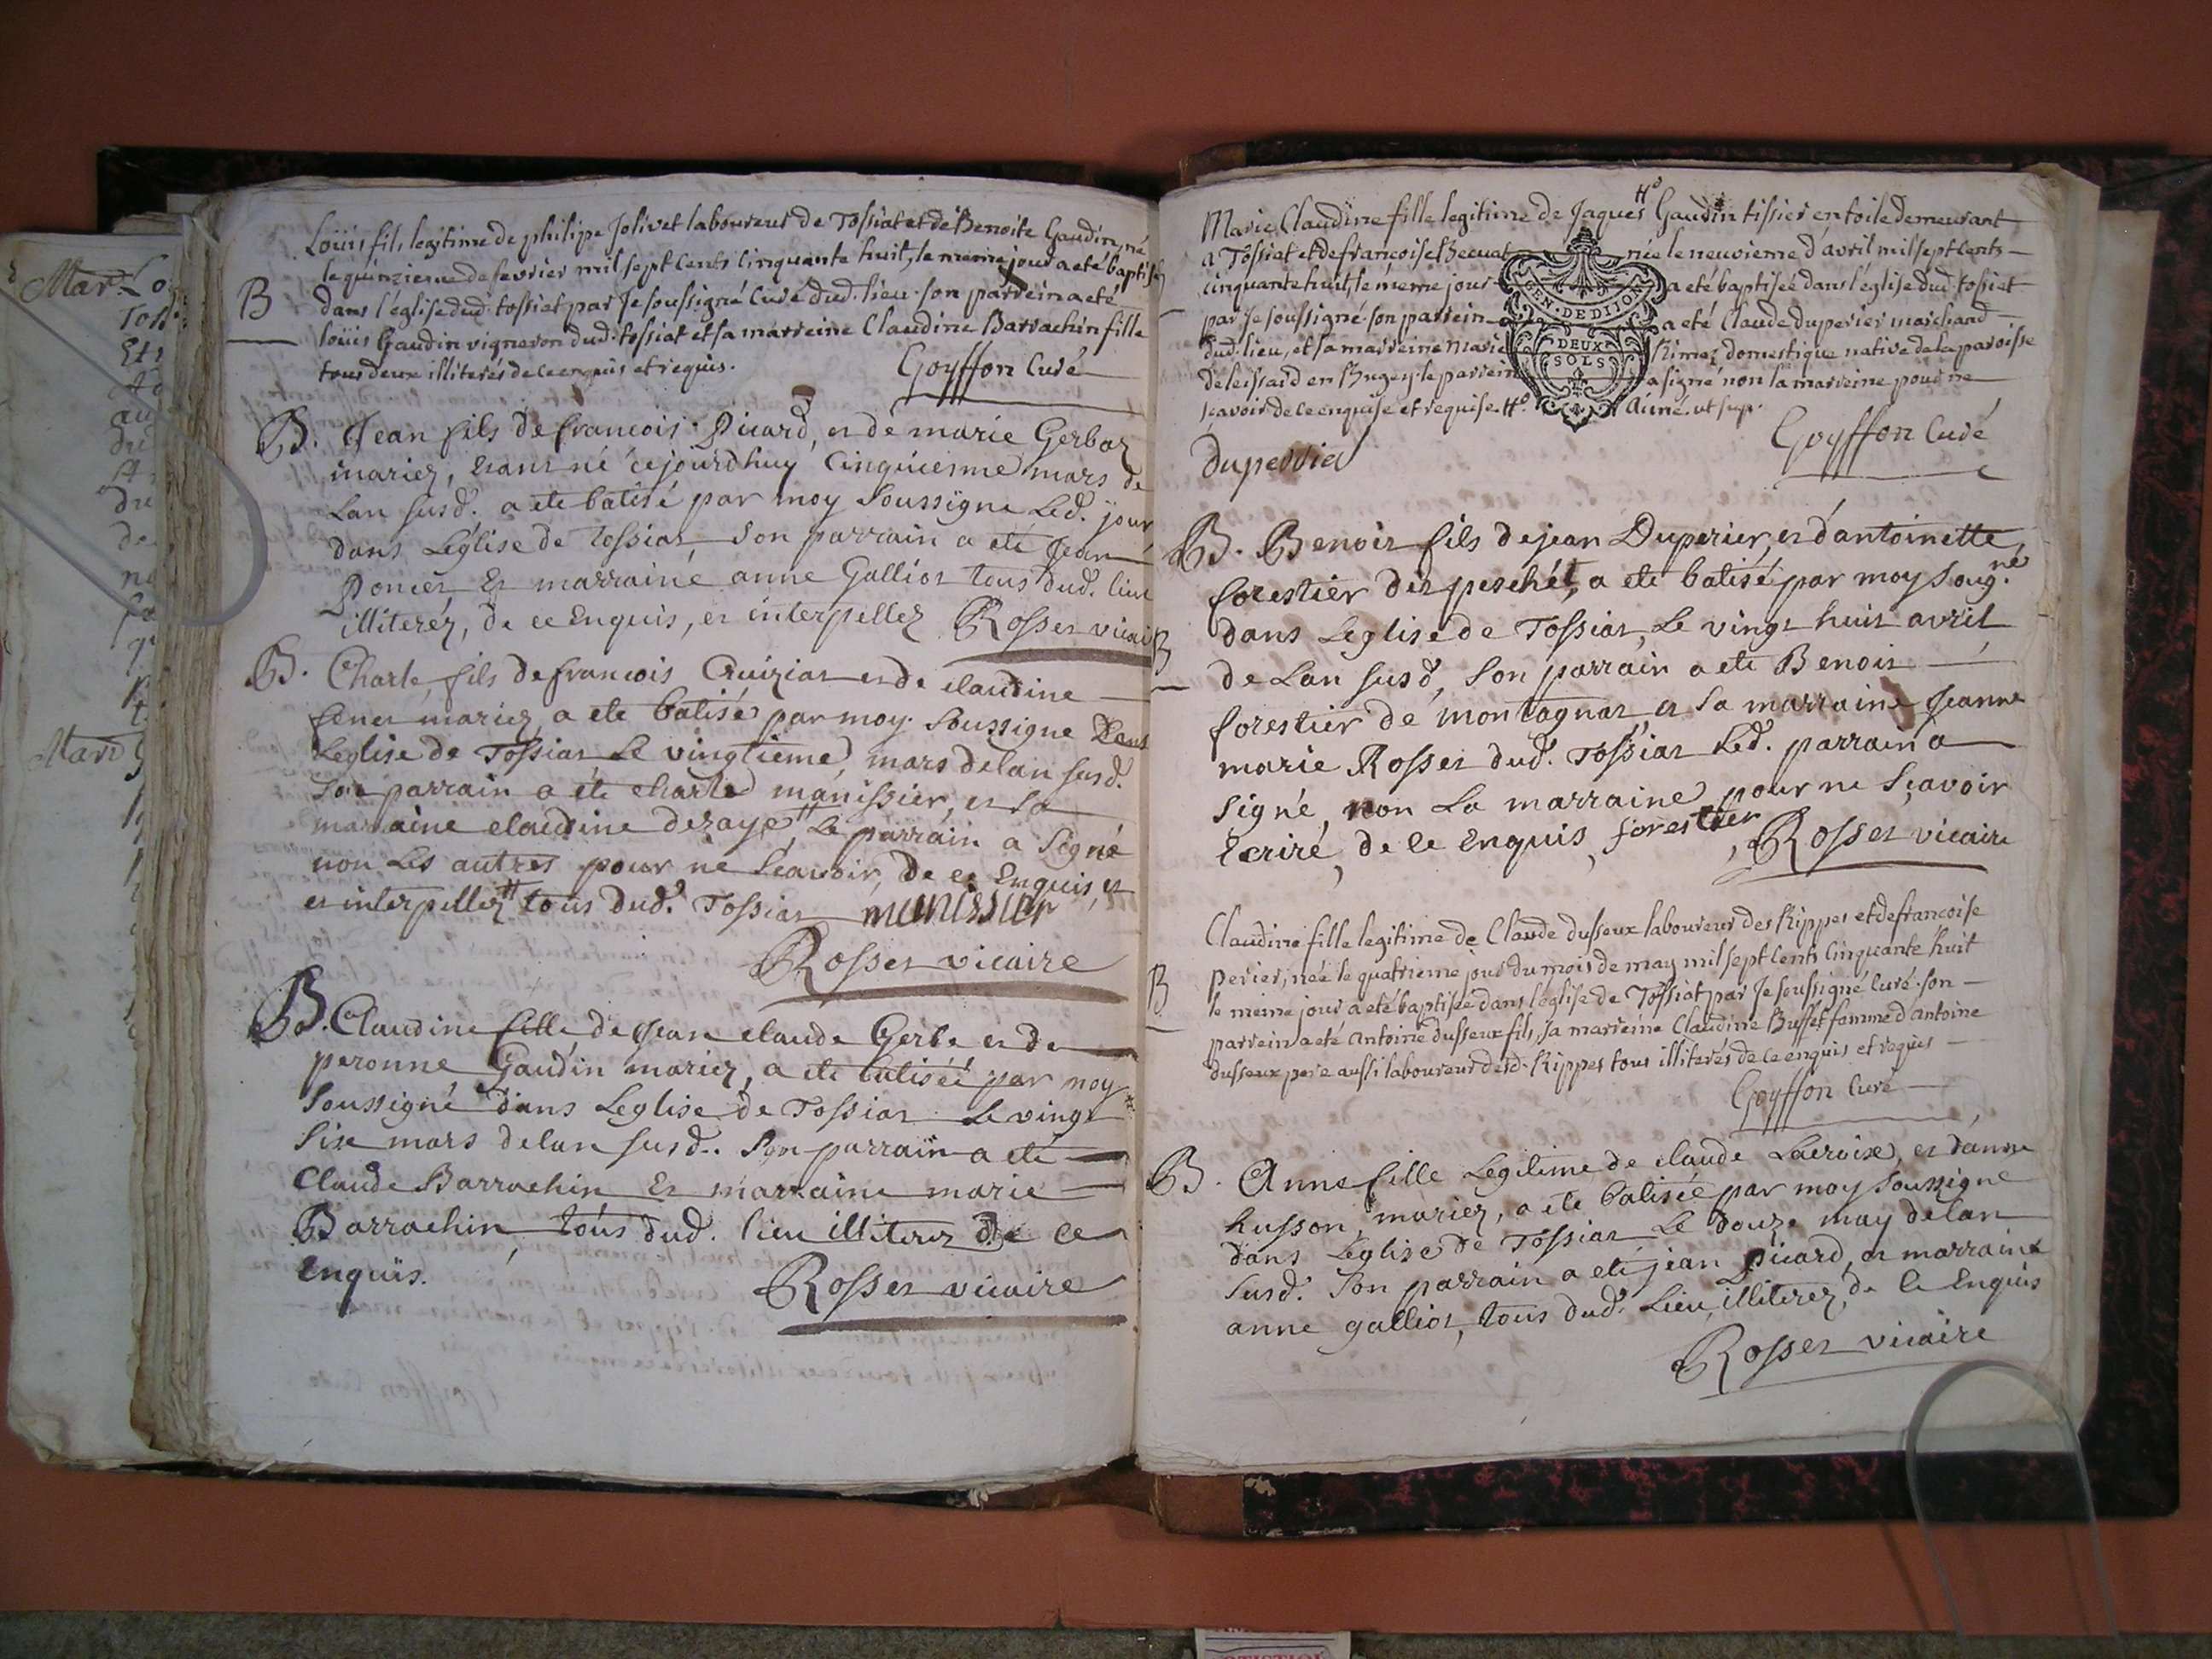 Mar.
Mar.
Loüis fils legitime de philipe Jolivet laboureur de Tossiat et de Benoite Gaudin, né
le quinzieme de fevrier mil sept cents cinquante huit, le meme jour a eté baptisé
B
dans l'église dud. tossiat par Je soussigné Curé dud. lieu. son parrein a eté
loüis Gaudin vigneron dud. tossiat et sa marreine Claudine Barrachin fille
tous deux illiterés de ce enquis et requis.
Goyffon Curé
B. Jean fils de francois Picard, et de marie Gerbaz
mariez, etant né cejourdhuy cinquiesme mars de
Lan susd. a ete batisé par moy soussigne Led. jour
dans L'église de Tossiat, son parrain a eté Jean
Poncet Et marraine anne Galliot tous dud. lieu
illiteréz, de ce Enquis, et interpellez Rosset vicair
B. Charle, fils de francois Cruiziat et de claudine
mariez a ete batisé par moy soussigne Dans
Leglise de Tossiat Le vingtieme mars de lan susd.
son parrain a eté charle manissier, et sa
marraine claudine deraye # Le parrain a signé
non Les autres pour ne scavoir, de ce Enquis, et
et interpellez # tous dud. Tossiat manissier
Rosset vicaire
B. Claudine fille de Jean claude Gerbe et de
peronne Gaudin mariez, a ete batiséé par moy
soussigné dans Leglise de Tossiat Le vingt
six mars de lan susd.. son parrain a eté
Claude Barrachin Et marraine marie
Barrachin, tous dud. lieu illiterez de ce
Enquis.
Rosset vicaire
Marie Claudine fille legitime de Jaques Gaudin tissier en toile demeurant
a Tossiat et de francoise Becuat née le neuvieme d'avril mil sept cents
cinquante huit, le meme jour a eté baptisée dans l'église dud. tossiat
par Je soussigné. son parrein a eté Claude duperier marchand
dud. lieu, et sa marreine Marie domestique native de la paroisse
de leissard en Bugey. le parrein a signé non la marreine pour ne
scavoir de ce enquise et requise. Ainé. ut sup.
GEN. DE DIJON
DEUX
SOLS
Goyffon Curé
duperrier
B. Benoit fils de jean Duperier, et d'antoinette
forestier des peschét, a ete batisé par moy sousg.né
dans Leglise de Tossiat, Le vingt huit avril
B
de Lan susd, son parrain a ete Benoit
forestier de montagnat, et sa marraine Jeanne
marie Rosset dud. Tossiat Led. parrain a
signé, non La marraine pour ne sçavoir
Ecriré, de ce Enquis, forestier, Rosset vicaire
Claudine fille legitime de Claude dusseux laboureur des Rippes et de francoise
B
perier, née le quatrieme jour du mois de may mil sept cents cinquante huit
le meme jour a eté baptisée dans l'église de Tossiat par Je soussigné Curé. son
parrein a eté Antoine dusseux fils, sa marreine Claudine Buffet famme d'antoine
dusseux pere aussi laboureur desd. Rippes tous illiterés de ce enquis et requis
Goyffon Curé
B. Anne fille Legitime de claude Lacroix, et danne
husson, mariez, a ete batisée par moy soussigne
dans Leglise de Tossiat Le douze may de lan
susd. son parrain a eté jean Picard, et marraine
anne galliot, tous dud. Lieu, illiterez, de ce Enquis
Rosset vicaire